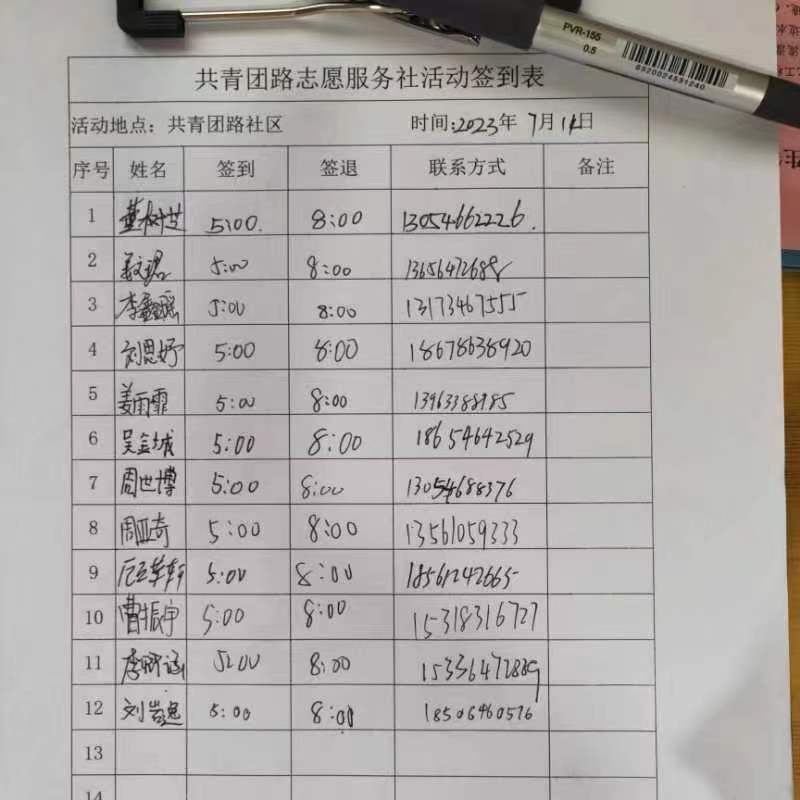 PVR-155
0.5
6920024531240
共青团路志愿服务社活动签到表
活动地点：共青团路社区 时间:2023年 7月 14日
序号 姓名 签到 签退 联系方式 备注
1 5:00. 8:00 13054662226.
2 5:00 8:00 13656472688
3 李鑫瑶 5:00 8:00 13173467555
4 刘恩妤 5:00 8:00 18678638920
5 姜雨霏 5:00 8:00 13963388985
6 吴金城 5:00 8:00 18654642529
7 周世博 5:00 8:00 13054688376
8 周亚奇 5:00 8:00 13561059333
9 5:00 8:00 18561242665
10 曹振宇 5:00 8:00 15318316727
11 5:00 8:00 15336472889
12 5:00 8:00 18506460576
13
14